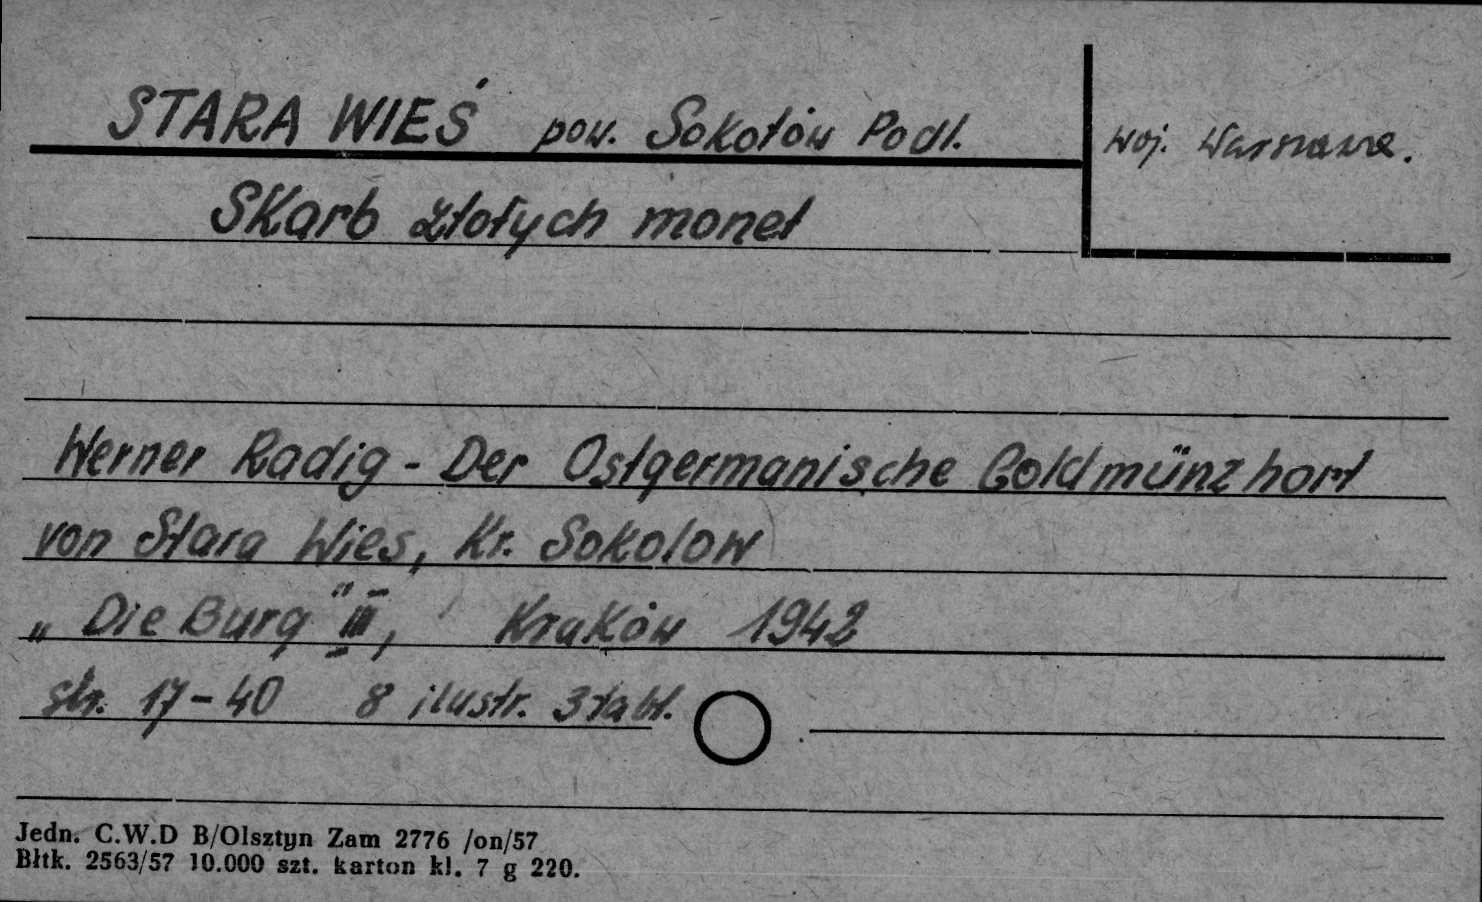 STARA WIEŚ pow. Sokołów Podl.
woj. Warszawa.
Skarb złotych monet
Werner Radig - Der Ostgermanische Goldmünzhort
von Stara Wies, Kr. Sokolow
„Die Burg" III, Kraków 1942
str. 17-40 8 ilustr. 3 tabl.
Jedn. C.W.D B/Olsztyn Zam 2776 /on/57
Błtk. 2563/57 10.000 szt. karton kl. 7 g 220.